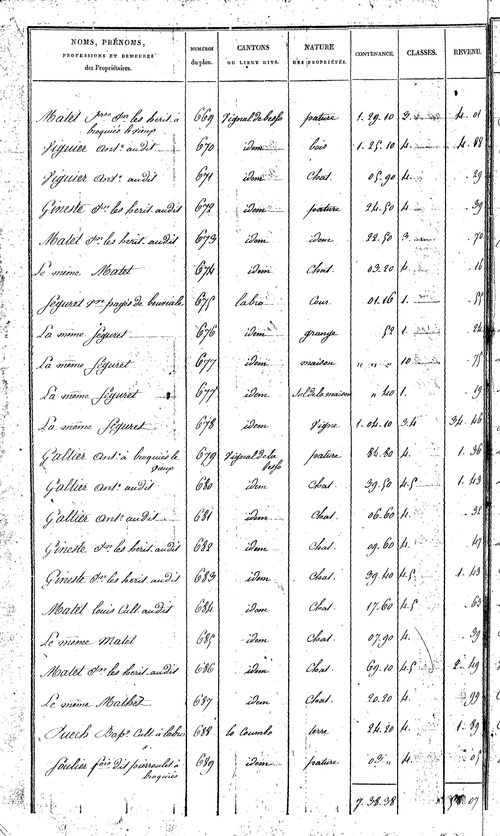 NOMS, PRÉNOMS, PROFESSIONS ET DEMEURES des Propriétaires. NUMÉROS du plan. CANTONS OU LIEUX DITS. NATURE DES PROPRIÉTÉS. CONTENANCE. CLASSES. REVENU.
Matet pre Jn les herit. à 669 Vignal de besso pature 1. 29. 10 3. 4. 01
broquiès le vieux
Viguier Ant. audit 670 idem bois 1. 25. 10 4. 4. 88
Viguier Ant. audit 671 idem Chat. 05. 90 4. 29
Gineste Jn les herit. audit 672 idem pature 24. 50 4. 39
Matet Jn les herit. audit 673 idem idem 22. 50 3. 70
Le même Matet 674 idem Chat. 03. 20 4. 16
Séguret pagès de 675 labro Cour 01. 16 1. 55
La même Séguret 676 idem grange 52 1. 24
La même Séguret 677 idem maison " " " 10. 75
La même Séguret 677 idem Sol de la maison " 40 1. 19
La même Séguret 678 idem Vigne 1. 04. 10 3.4 34. 46
Galtier Ant. à broquiès le 679 Vignal de la pature 84. 80 4. 1. 36
vieux besso
Galtier Ant. audit 680 idem Chat. 39. 50 4.5 1. 43
Galtier Ant. audit 681 idem Chat. 06. 60 4. 32
Gineste Jn les herit. audit 682 idem Chat. 09. 60 4. 47
Gineste Jn les herit. audit 683 idem Chat. 39. 40 4.5 1. 43
Matet louis Cult audit 684 idem Chat. 17. 60 4.5 63
Le même Matet 685 idem Chat. 07. 90 4. 39
Matet Jn les herit. audit 686 idem Chat. 69. 10 4.5 2. 49
Le même Mathet 687 idem Chat. 20. 20 4. 99
Puech Bapt. Cult à labro 688 la Coumbo terre 24. 20 4. 1. 89
Soulier fois dit pierroulet à 689 idem pature 03. " 4. 05
broquiès
7. 38. 38 07